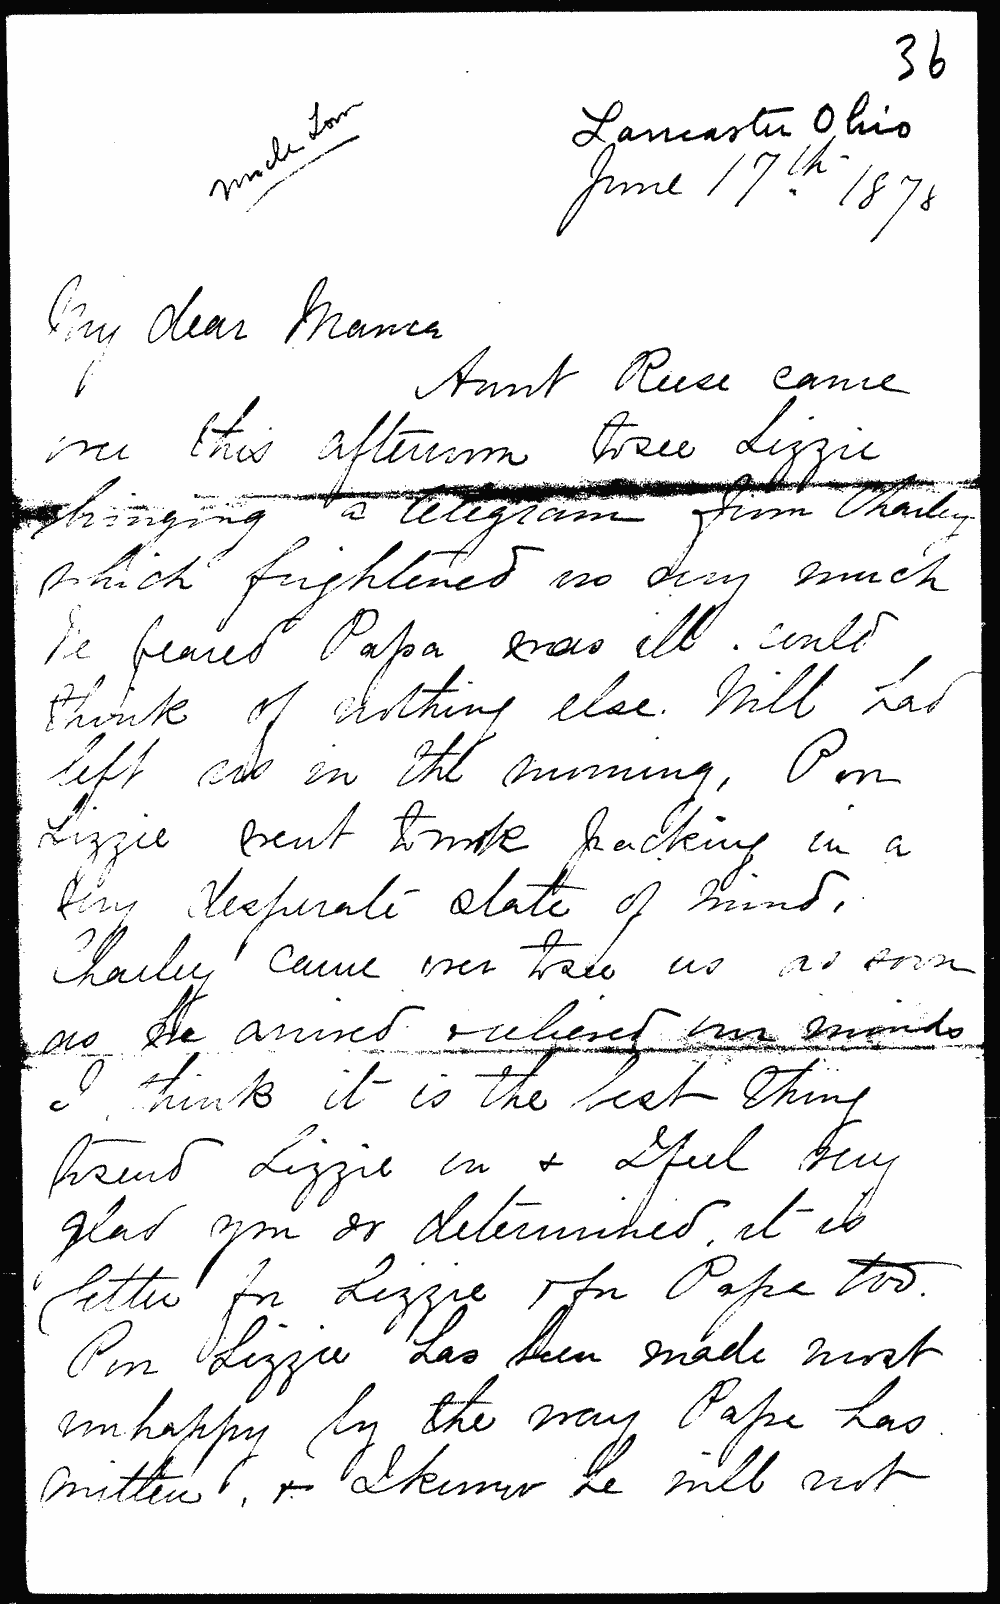 36
Uncle Tom
Lancaster Ohio
June 17th 1878
My dear Mama
Aunt Reese came
over this afternoon to see Lizzie
bringing a telegram from Charley
which frightened us very much
We feared Papa was ill. could
think of nothing else. Will had
left us in the morning, Poor
Lizzie went to work packing in a
very desperate state of mind.
Charley came over to see us as soon
as he arrived & relieved our minds
I think it is the best thing
to send Lizzie on & I feel very
glad you so determined, it is
better for Lizzie & for Papa too.
Poor Lizzie has been made most
unhappy by the way Papa has
written, & I know he will not